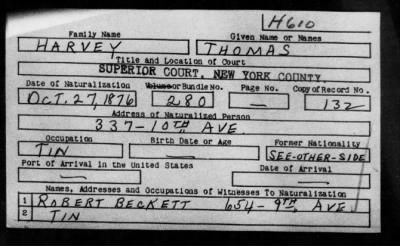 H610
Family Name Given Name or Names
HARVEY THOMAS
Title and Location of Court
SUPERIOR COURT, NEW YORK COUNTY
Date of Naturalization Volume or Bundle No. Page No. Copy of Record No.
OCT. 27, 1876 280 — 132
Address of Naturalized Person
337-10TH AVE.
Occupation Birth Date or Age Former Nationality
TIN — SEE-OTHER-SIDE
Port of Arrival in the United States Date of Arrival
— —
Names, Addresses and Occupations of Witnesses To Naturalization
1 ROBERT BECKETT 654-9TH AVE.
2 TIN